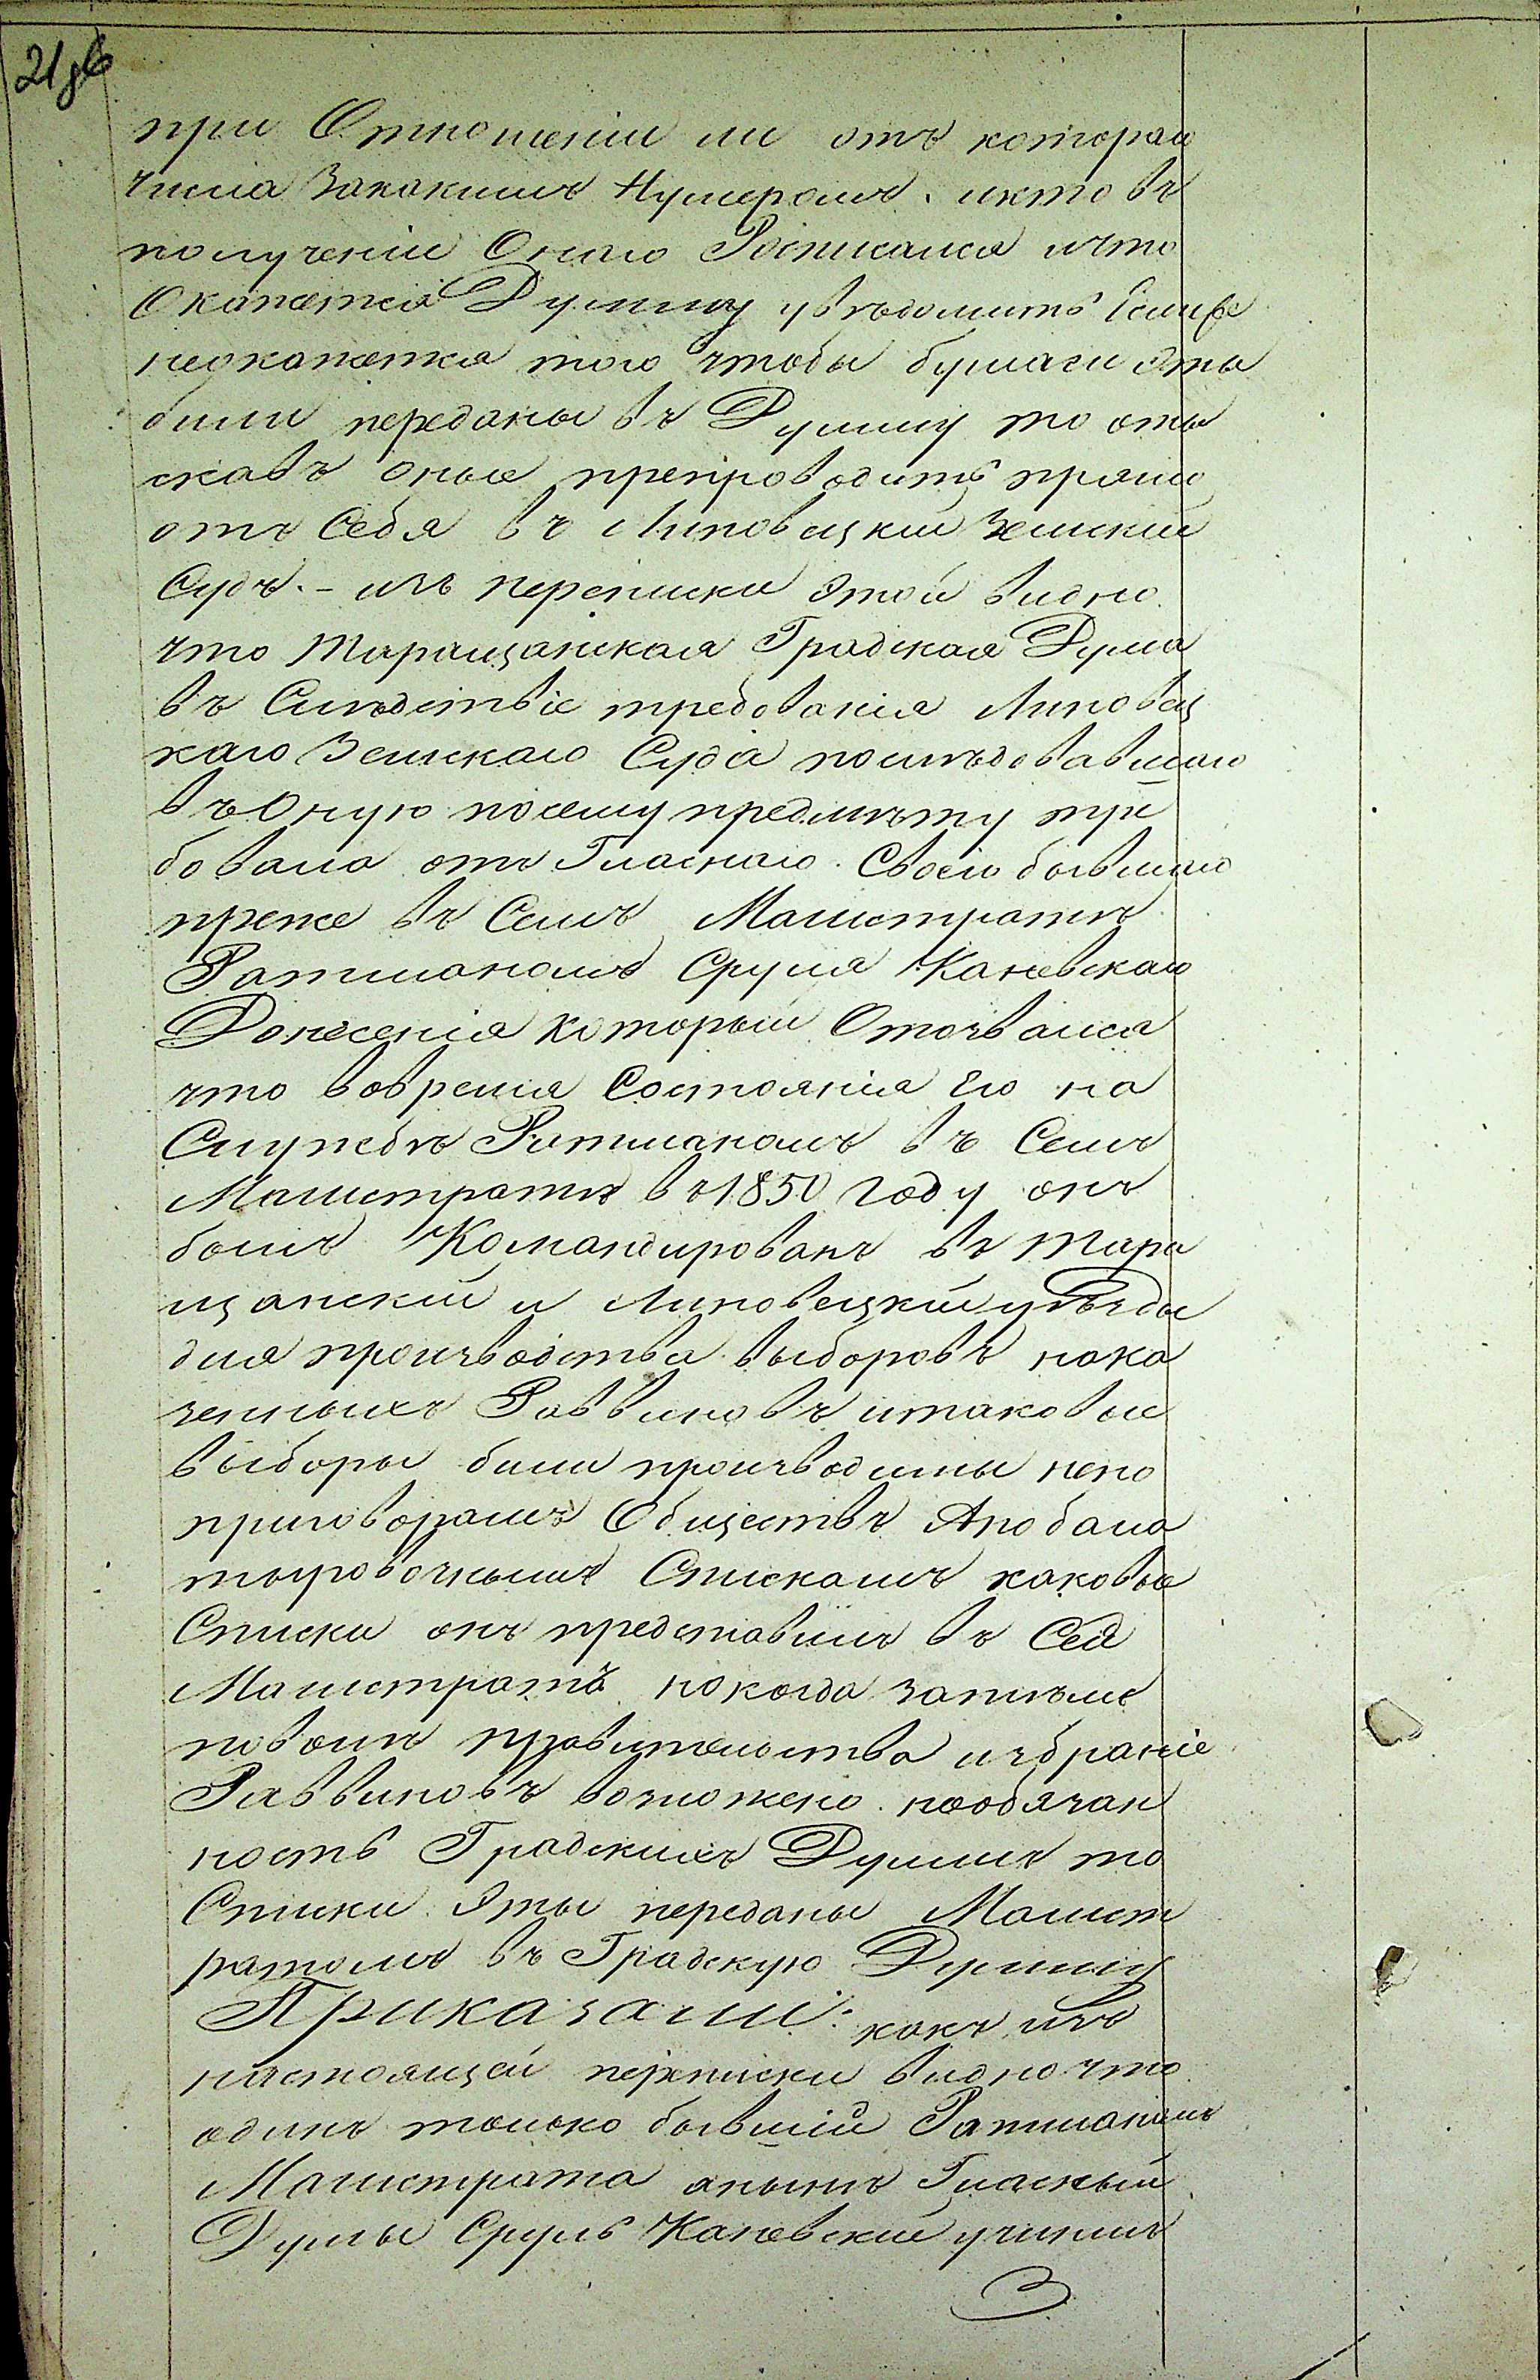 21 об
при Отношеніи ли отъ котораго
числа Закакимъ Нумеромъ. икто въ
полученіи Онаго Росписался ичто
Окажется Думму увѣдомить Еслиже
неокажется того чтобы бумаги эты
били переданы въ Думму то оты
скавъ оные препроводить прямо
отъ Себя въ Липовецкій Земскій
Судъ. - изъ переписки этой видно
что Таращанская Градская Дума
въ Слѣдствіе требованія Липовец
каго Земскаго Суда послѣдовавшаго
въ Оную посему предмѣту тре
бовала отъ Гласнаго Своего бывшаго
преже въ Семъ Магистратѣ
Ратманомъ Сруля Каневскаго
Донесенія который Отозвался
что вовремя Состоянія Его на
Службѣ Ратманомъ въ Семъ
Магистратѣ въ 1850 году онъ
болъ Командированъ въ Тара
щанскій и Липовецкій уѣзды
для произъводства выборовъ нака
зенныхъ Раввиновъ итаковые
выборы били произъводимы непо
приговорамъ Обществъ Апобало
тыровочнымъ Спискамъ каковые
Списки онъ представилъ въ Сей
Магистратъ нокогда затѣмъ
поволѣ правительства избраніе
Раввиновъ возложено наобязан
ность Градскихъ Думмъ то
Списки эты переданы Магист
ратомъ въ Градскую Думму
Приказали: какъ изъ
настоящей переписки видно что
одинъ только бывшій Ратманомъ
Магистрата анынѣ Гласный
Думы Сруль Каневскій учинилъ